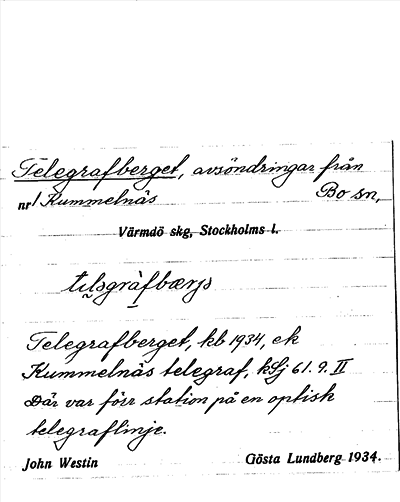 Telegrafberget, avsöndringar från
nr 1 Kummelnäs Bo sn,
Värmdö skg, Stockholms l.
Telegrafberget, kb 1934, ek
Kummelnäs telegraf, kSj 61. 9. II
Där var förr station på en optisk
telegraflinje.
John Westin Gösta Lundberg 1934.